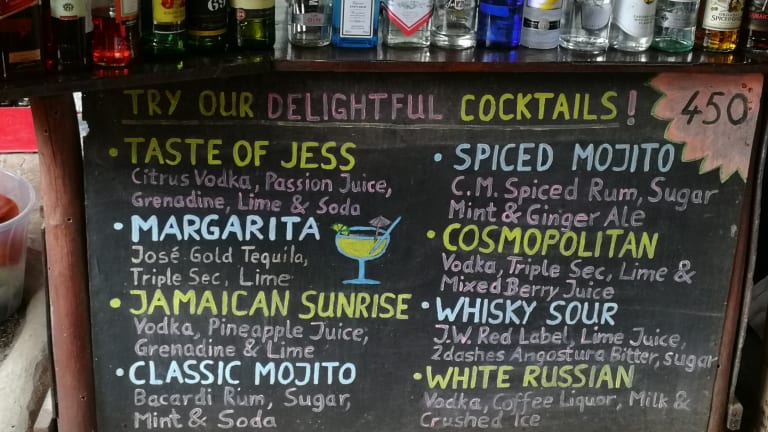 TRY OUR DELIGHTFUL COCKTAILS!
450
• TASTE OF JESS
Citrus Vodka, Passion Juice,
Grenadine, Lime & Soda
• MARGARITA
José Gold Tequila,
Triple Sec, Lime
• JAMAICAN SUNRISE
Vodka, Pineapple Juice,
Grenadine & Lime
• CLASSIC MOJITO
Bacardi Rum, Sugar,
Mint & Soda
• SPICED MOJITO
C.M. Spiced Rum, Sugar
Mint & Ginger Ale
• COSMOPOLITAN
Vodka, Triple Sec, Lime &
Mixed Berry Juice
• WHISKY SOUR
J.W. Red Label, Lime Juice,
2dashes Angostura Bitter, sugar
• WHITE RUSSIAN
Vodka, Coffee Liquor, Milk &
Crushed Ice